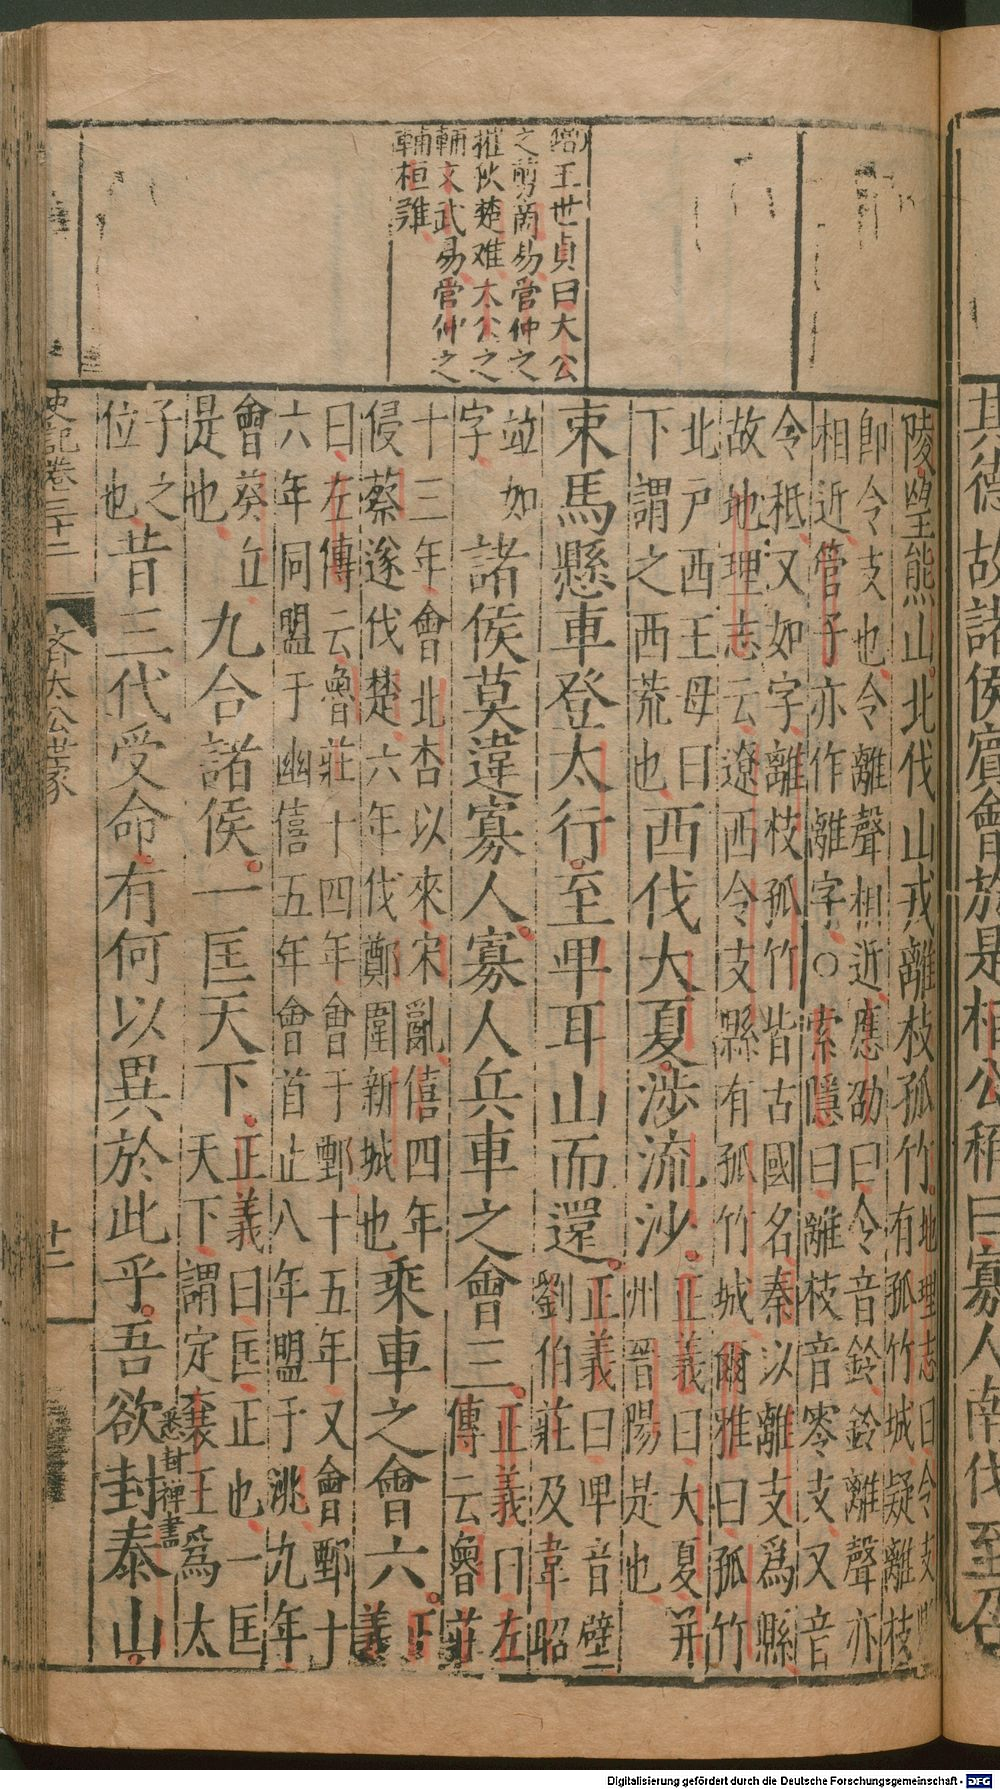 其德故諸侯賓會於是桓公稱曰寡人南伐至召
增王世貞曰大公
之剪商易管仲之
摧狄楚难太公之
輔文武易管仲之
輔桓難
陵望熊山北伐山戎離枝孤竹地理志曰令支縣
有孤竹城疑離枝
卽令支也令離聲相近應劭曰令音鈴鈴離聲亦
相近管子亦作離字○索隱曰離枝音零支又音
令秪又如字離枝孤竹皆古國名秦以離支爲縣
故地理志云遼西令支縣有孤竹城爾雅曰孤竹
北戸西王母日
下謂之西荒也
西伐大夏涉流沙正義曰大夏幷
州晉陽是也
束馬懸車登太行至卑耳山而還正義曰卑音壁
劉伯莊及韋昭
竝如
字
諸侯莫違寡人寡人兵車之會三正義曰左
傳云魯莊
十三年會北杏以來宋亂僖四年
侵蔡遂伐楚六年伐鄭圍新城也
乘車之會六正
義
曰左傳云魯莊十四年會于鄄十五年又會鄄十
六年同盟于幽僖五年會首止八年盟于洮九年
會葵丘
是也
九合諸侯一匡天下正義曰匡正也一匡
天下謂定襄王爲太
子之
位也
昔三代受命有何以異於此乎吾欲封泰山
悉封禪書
史記卷三十二
齊太公世家
十二
Digitalisierung gefördert durch die Deutsche Forschungsgemeinschaft - DFG